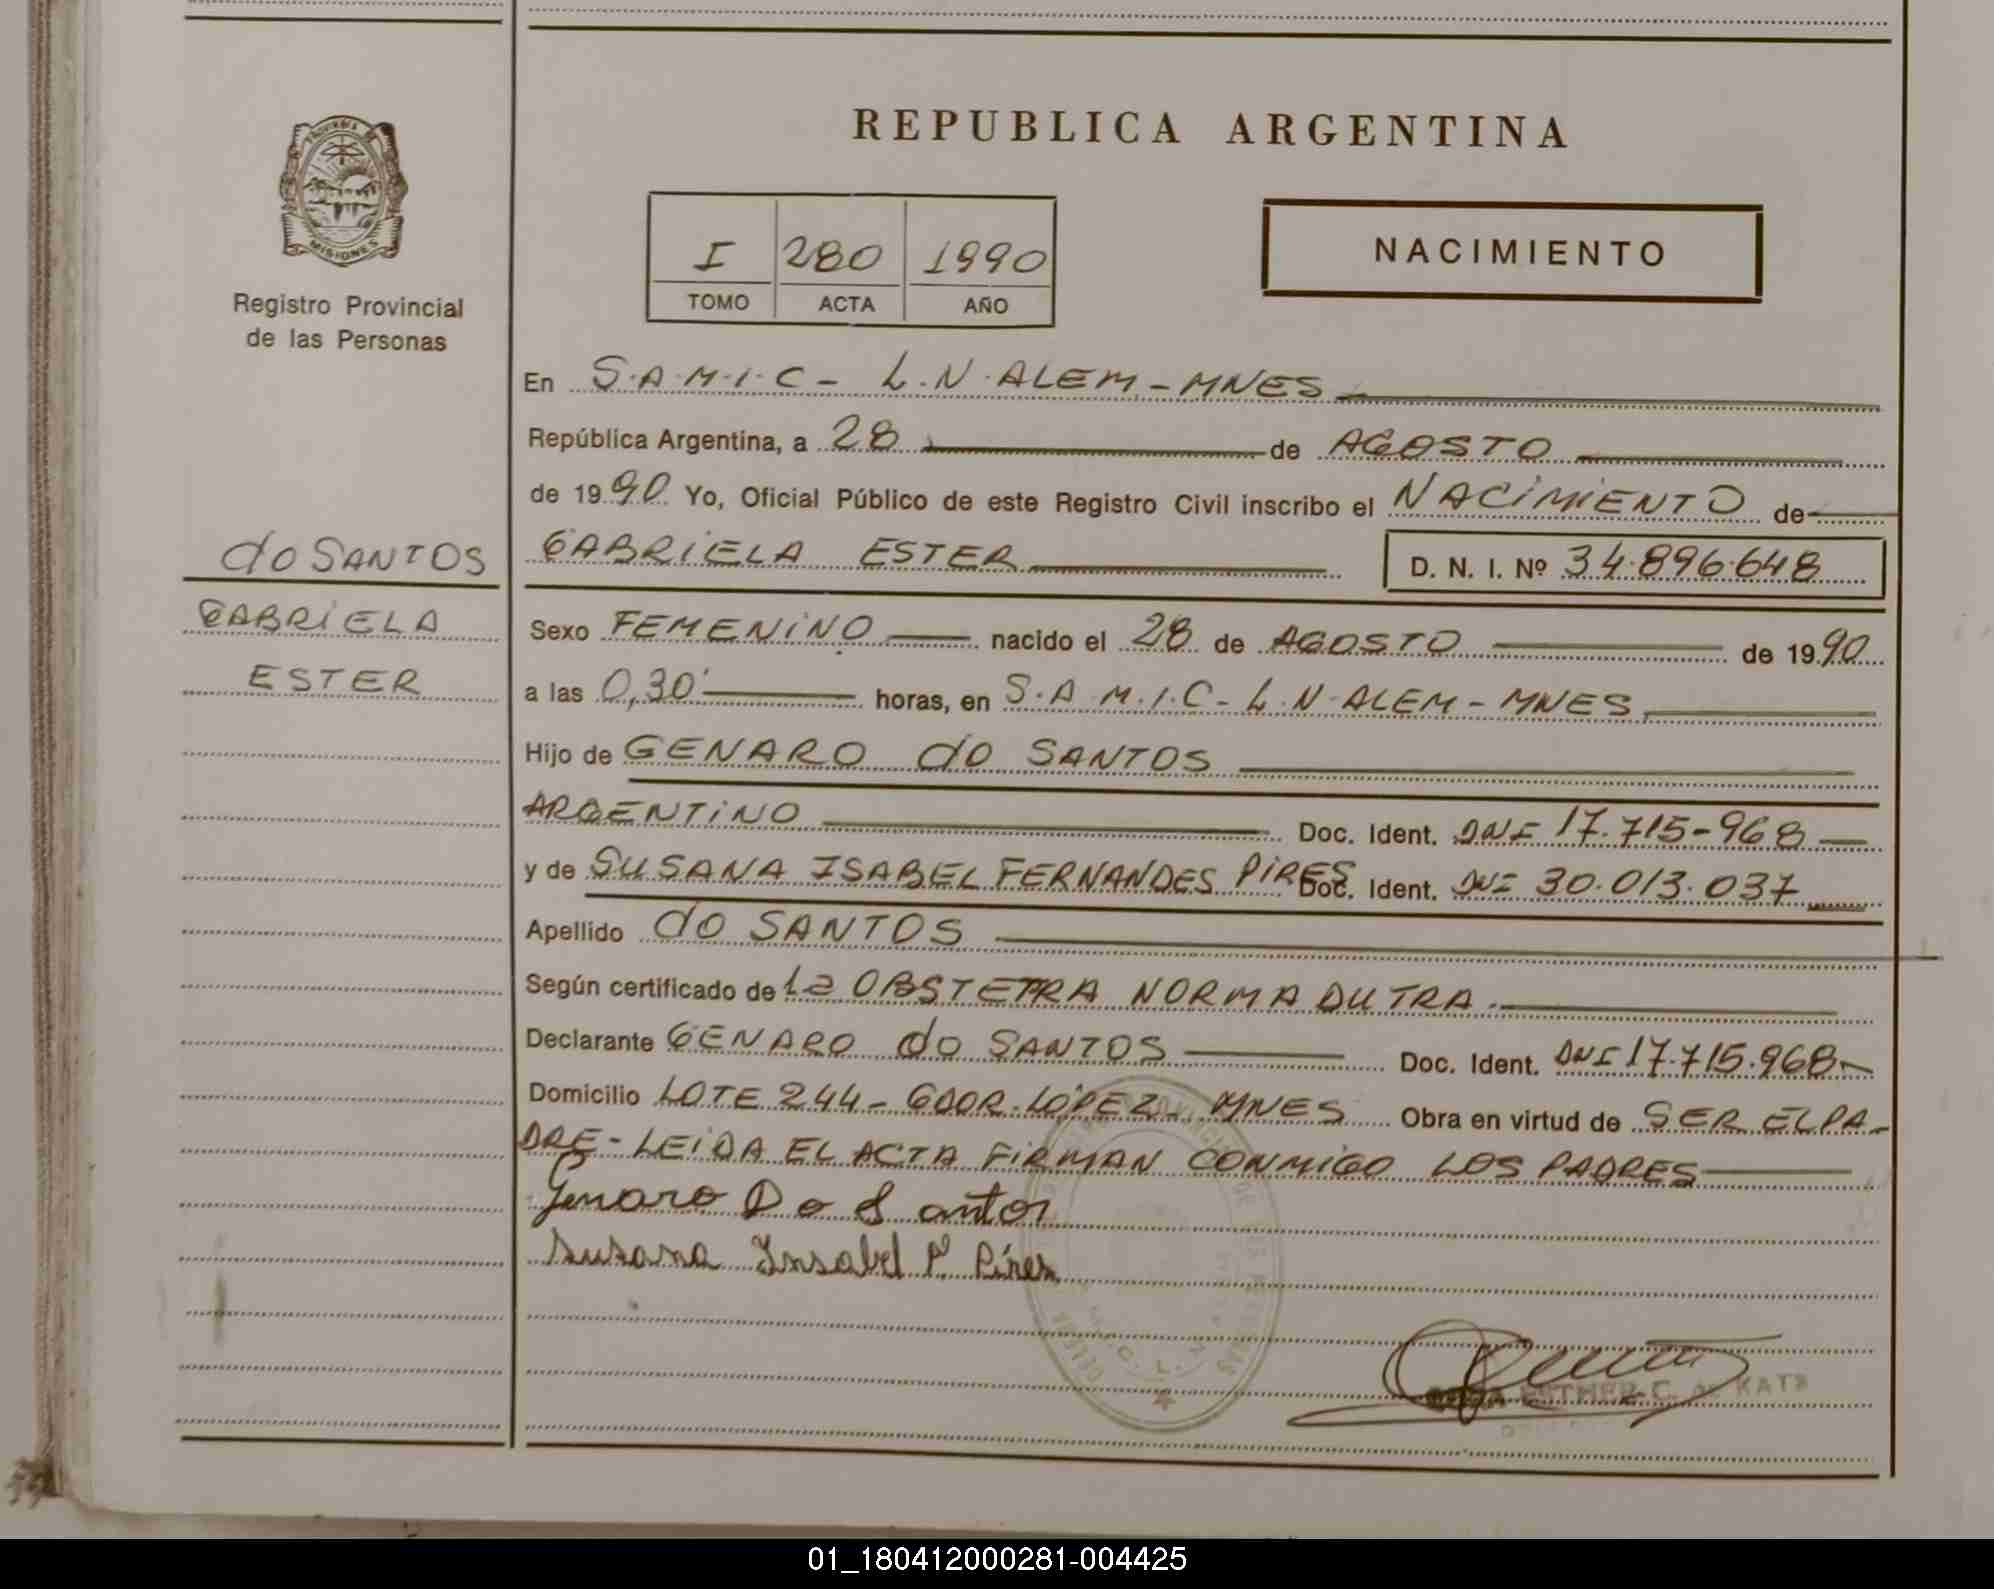 REPUBLICA ARGENTINA
PROVINCIA DE
MISIONES
Registro Provincial
de las Personas
I 280 1990
TOMO ACTA AÑO
NACIMIENTO
En S.A.M.I.C - L.N.ALEM - MNES
República Argentina, a 28 de AGOSTO
de 1990 Yo, Oficial Público de este Registro Civil inscribo el NACIMIENTO de
do SANTOS
GABRIELA
ESTER
GABRIELA ESTER D. N. I. Nº 34.896.648
Sexo FEMENINO nacido el 28 de AGOSTO de 1990
a las 0,30' horas, en S.A.M.I.C - L.N.ALEM - MNES
Hijo de GENARO do SANTOS
ARGENTINO Doc. Ident. DNI 17.715-968
y de SUSANA ISABEL FERNANDES PIRES Doc. Ident. DNI 30.013.037
Apellido do SANTOS
Según certificado de La OBSTETRA NORMA DUTRA.
Declarante GENARO do SANTOS Doc. Ident. DNI 17.715.968
Domicilio LOTE 244 - GDOR. LÓPEZ - MNES Obra en virtud de SER EL PA-
DRE - LEIDA EL ACTA FIRMAN CONMIGO LOS PADRES
Genaro Do Santos
Susana Insabel F Pires
ESTHER C. de KATZ
01_180412000281-004425